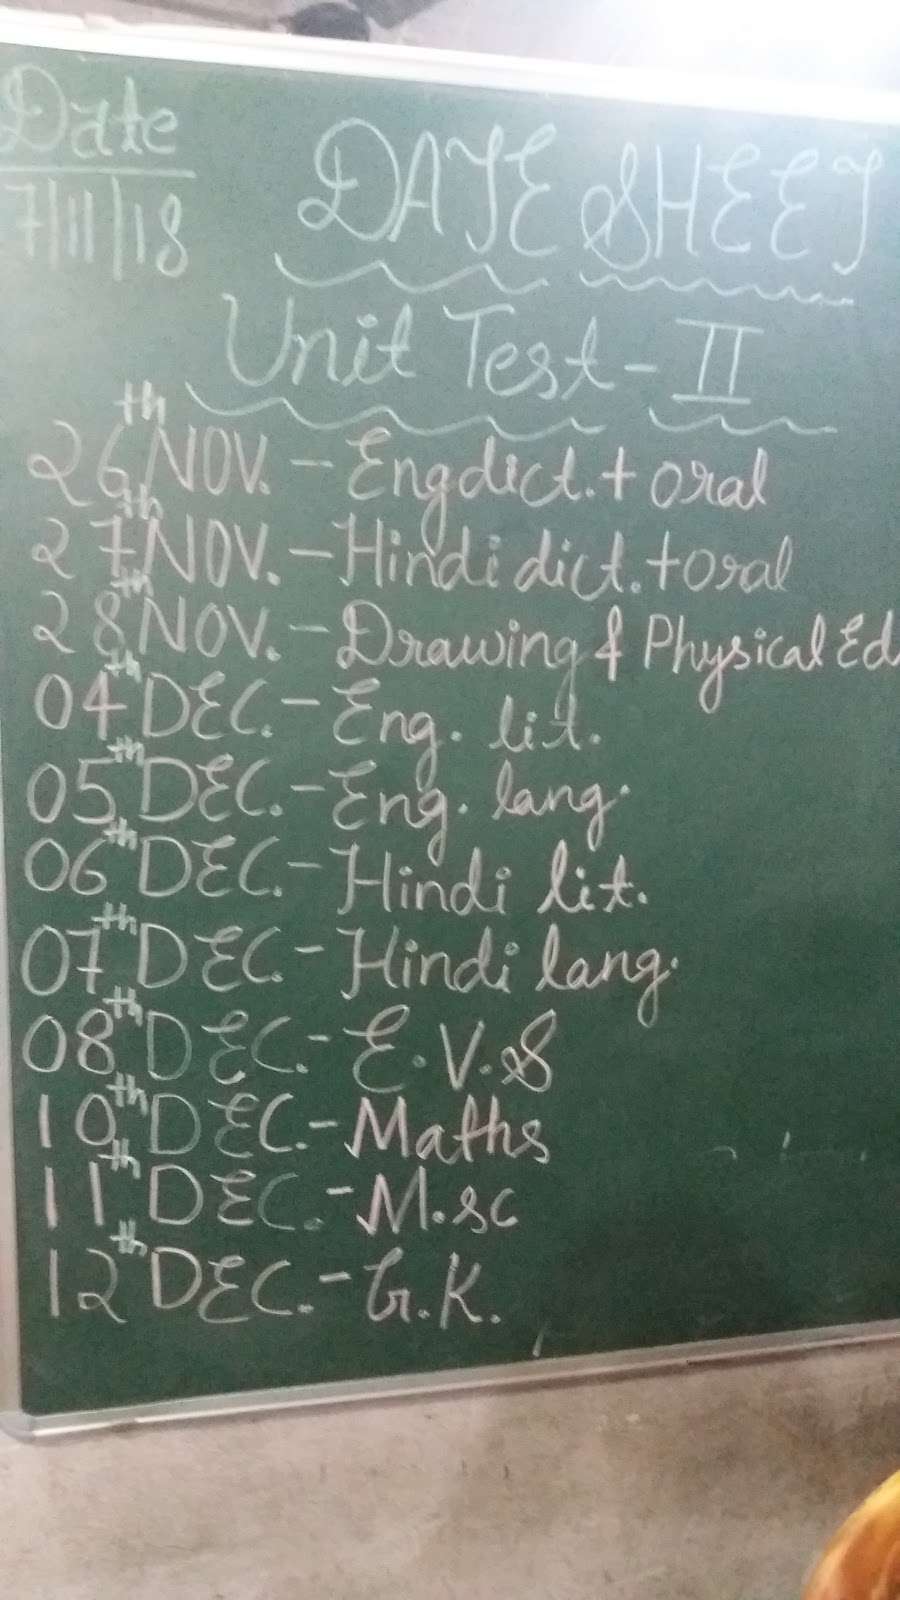 Date
7/11/18
DATE SHEET
Unit Test - II
26th NOV. - Eng dict. + oral
27th NOV. - Hindi dict. + oral
28th NOV. - Drawing & Physical Ed.
04th DEC. - Eng. lit.
05th DEC. - Eng. lang.
06th DEC. - Hindi lit.
07th DEC. - Hindi lang.
08th DEC. - E.V.S
10th DEC. - Maths
11th DEC. - M.sc
12th DEC. - G.K.